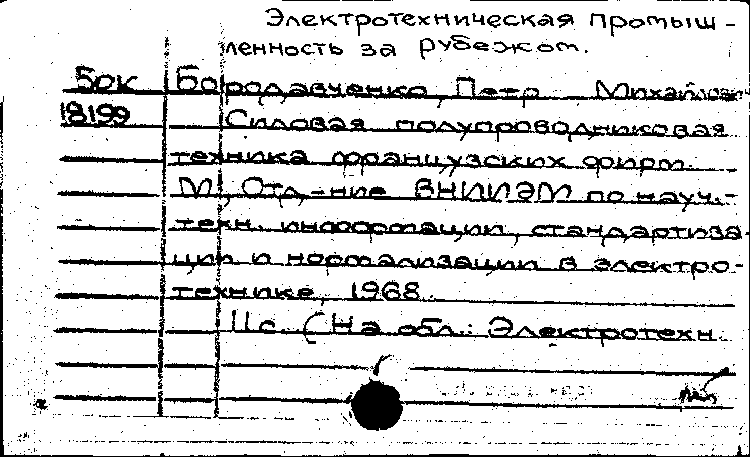 Электротехническая промыш-
ленность за рубежом.
Бок Бородавченко, Петр Михайлович
18199 Силовая полупроводниковая
техника французских фирм.
М., Отд-ние ВНИИЭМ по науч.-
техн. информации, стандартиза-
ции и нормализации в электро-
технике, 1968.
11с. (На обл.: Электротехн.